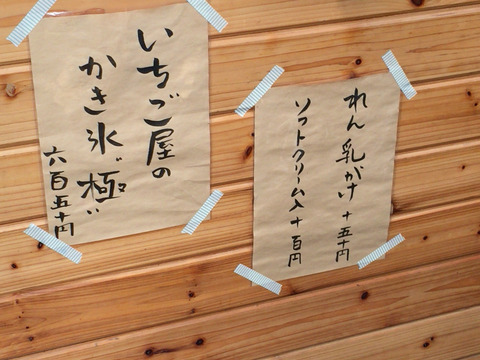 いちご屋の
かき氷〝極〟
六百五十円
れん乳がけ+五十円
ソフトクリーム入+百円